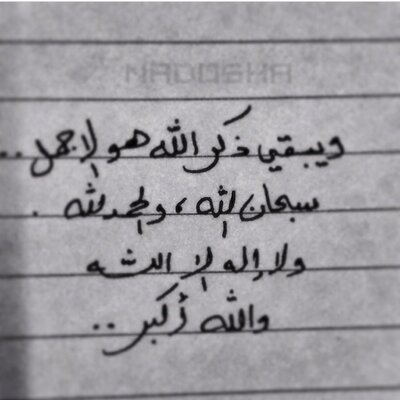 ويبقي ذكر الله هو الاجمل ..
سبحان الله ، والحمدلله .
ولا إله إلا الله
والله أكبر ..